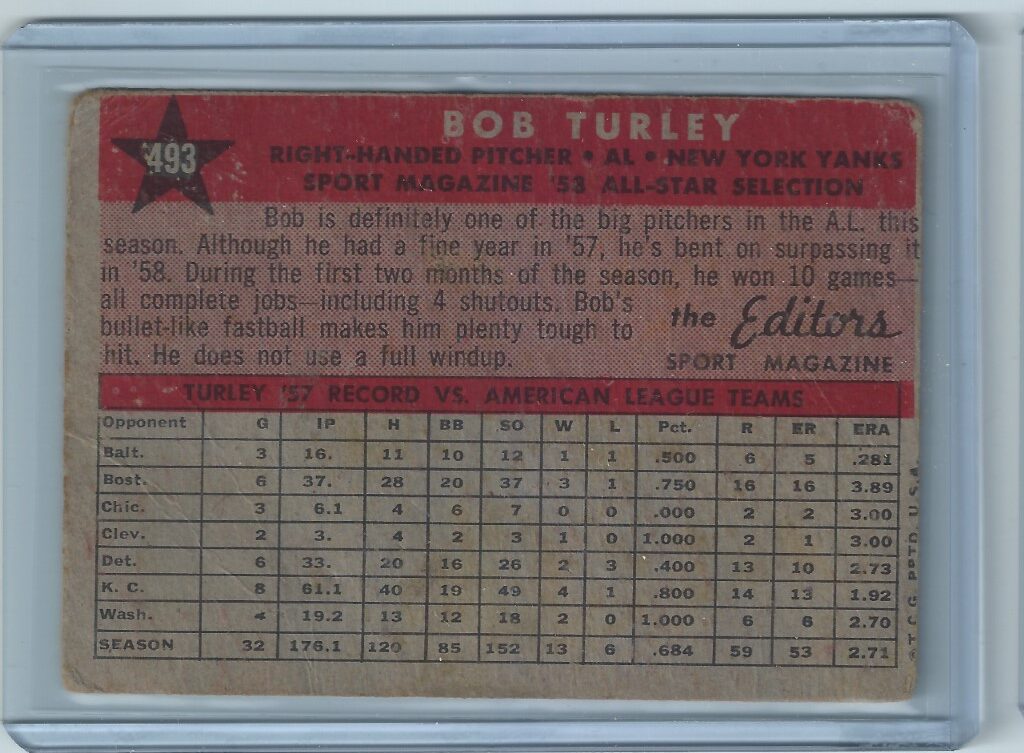 493
BOB TURLEY
RIGHT-HANDED PITCHER • AL • NEW YORK YANKS
SPORT MAGAZINE '58 ALL-STAR SELECTION
Bob is definitely one of the big pitchers in the A.L. this
season. Although he had a fine year in '57, he's bent on surpassing it
in '58. During the first two months of the season, he won 10 games—
all complete jobs—including 4 shutouts. Bob's
bullet-like fastball makes him plenty tough to
hit. He does not use a full windup.
the Editors
SPORT MAGAZINE
TURLEY '57 RECORD VS. AMERICAN LEAGUE TEAMS
Opponent G IP H BB SO W L Pct. R ER ERA
Balt. 3 16. 11 10 12 1 1 .500 6 5 .281
Bost. 6 37. 28 20 37 3 1 .750 16 16 3.89
Chic. 3 6.1 4 6 7 0 0 .000 2 2 3.00
Clev. 2 3. 4 2 3 1 0 1.000 2 1 3.00
Det. 6 33. 20 16 26 2 3 .400 13 10 2.73
K. C. 8 61.1 40 19 49 4 1 .800 14 13 1.92
Wash. 4 19.2 13 12 18 2 0 1.000 6 6 2.70
SEASON 32 176.1 120 85 152 13 6 .684 59 53 2.71
© T. C. G. PRTD. U.S.A.